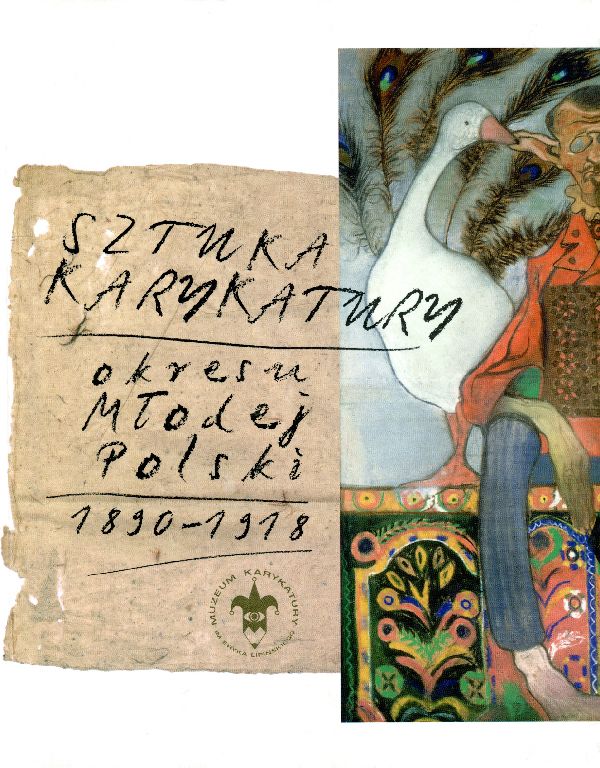 SZTUKA
KARYKATURY
okresu
Młodej
Polski
1890-1918
MUZEUM KARYKATURY
IM. ERYKA LIPIŃSKIEGO